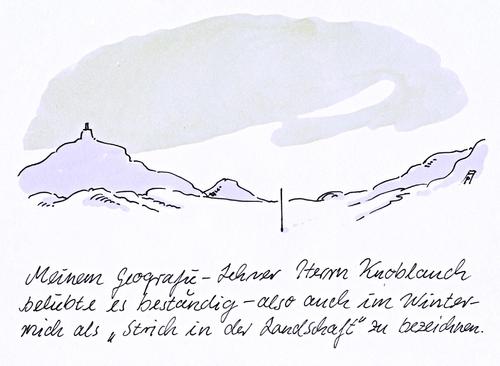 Meinem Geografie-Lehrer Herrn Knoblauch
beliebte es beständig - also auch im Winter-
mich als „Strich in der Landschaft" zu bezeichnen.